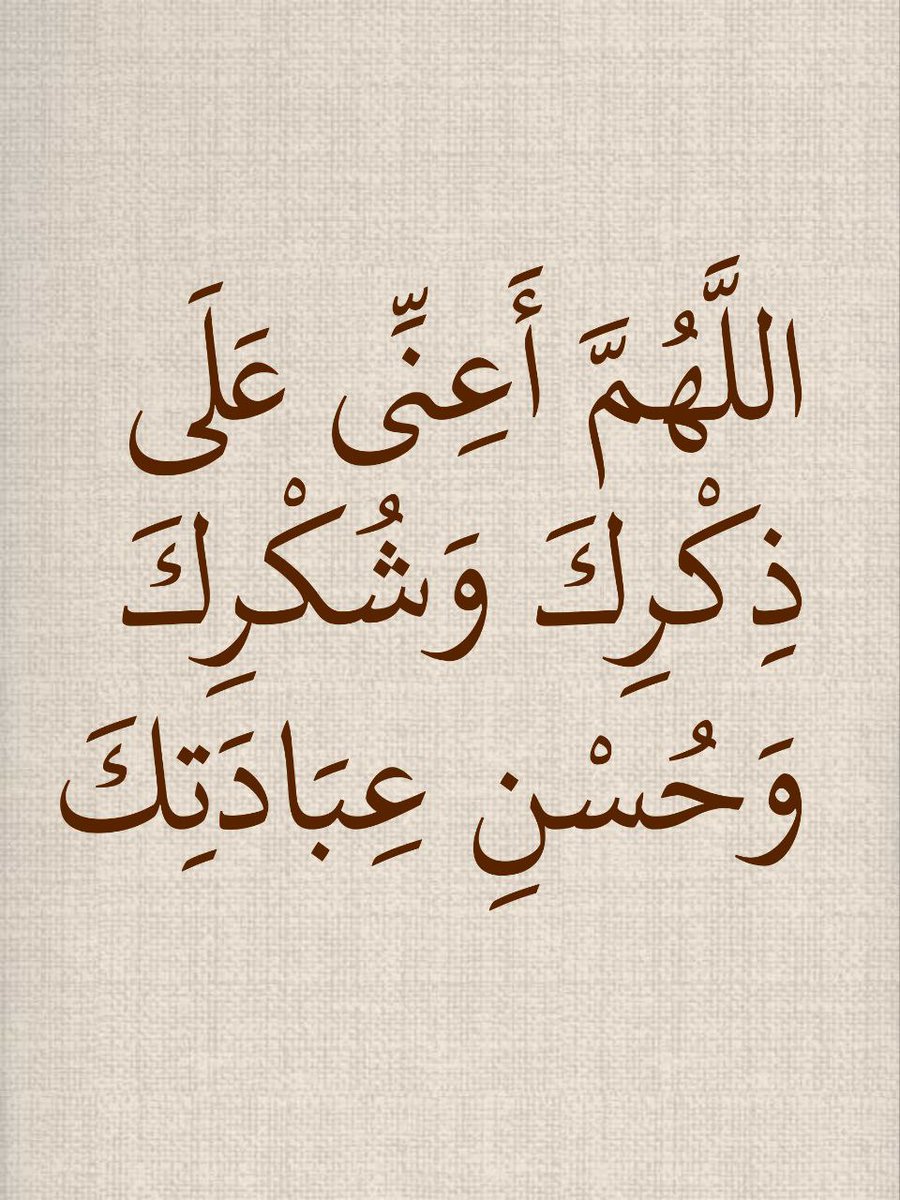 اللَّهُمَّ أَعِنِّى عَلَى
ذِكْرِكَ وَشُكْرِكَ
وَحُسْنِ عِبَادَتِكَ